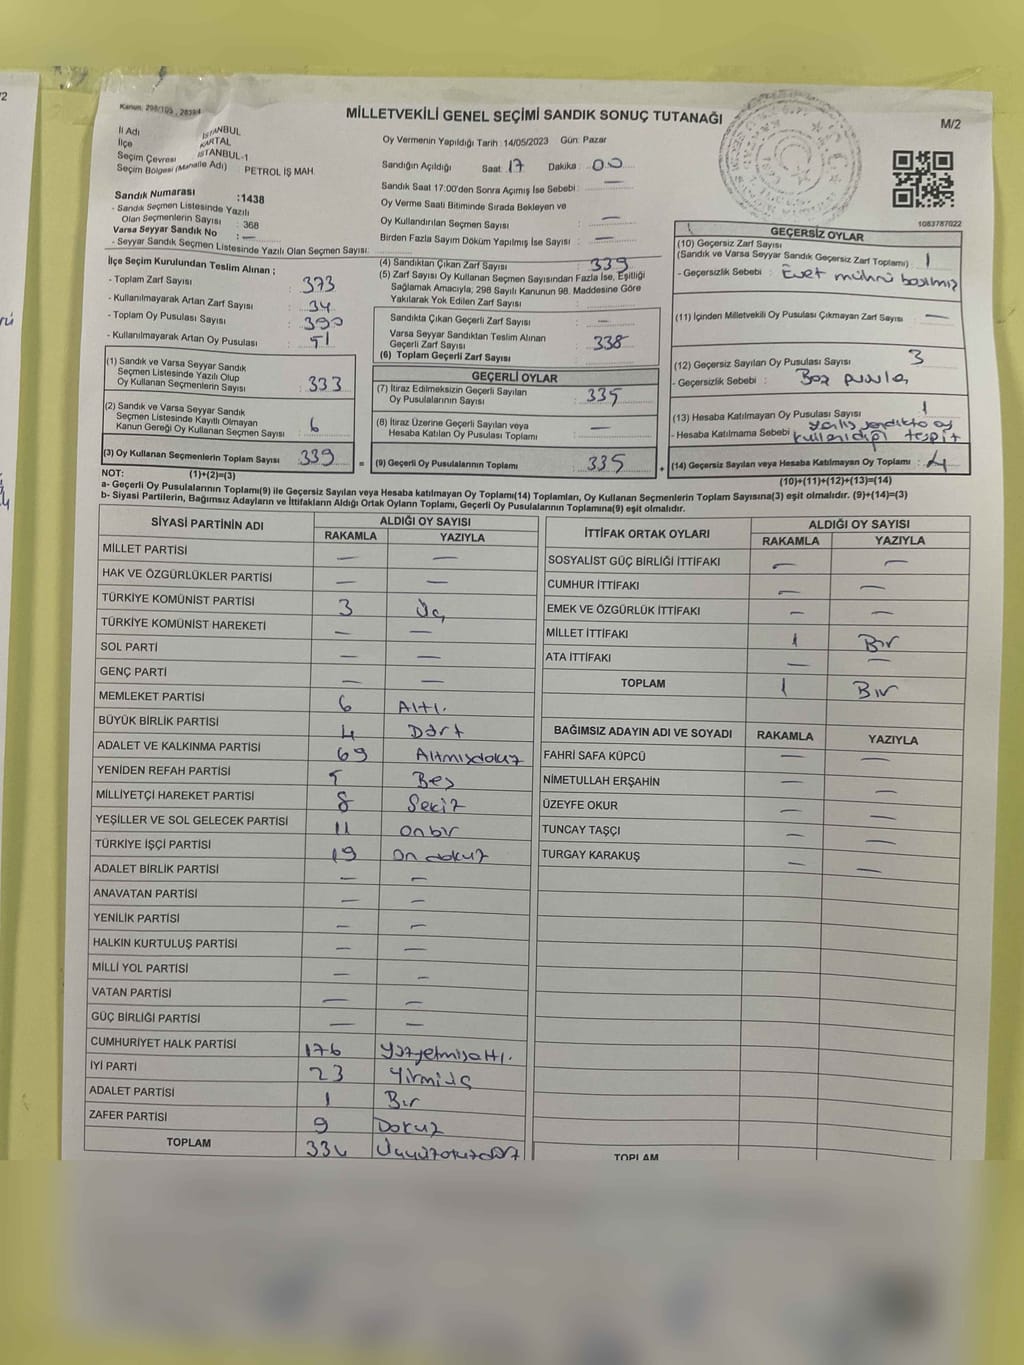 Kanun: 298/105, 283/H
MİLLETVEKİLİ GENEL SEÇİMİ SANDIK SONUÇ TUTANAĞI
M/2
İl Adı İSTANBUL
İlçe KARTAL
Seçim Çevresi İSTANBUL-1
Seçim Bölgesi (Mahalle Adı) PETROL İŞ MAH.
Sandık Numarası :1438
- Sandık Seçmen Listesinde Yazılı
Olan Seçmenlerin Sayısı : 368
Varsa Seyyar Sandık No : —
- Seyyar Sandık Seçmen Listesinde Yazılı Olan Seçmen Sayısı:
Oy Vermenin Yapıldığı Tarih : 14/05/2023 Gün: Pazar
Sandığın Açıldığı Saat 17 Dakika : 00
Sandık Saat 17:00'den Sonra Açımış İse Sebebi : —
Oy Verme Saati Bitiminde Sırada Bekleyen ve
Oy Kullandırılan Seçmen Sayısı : —
Birden Fazla Sayım Döküm Yapılmış İse Sayısı : —
1083787022
İlçe Seçim Kurulundan Teslim Alınan ;
- Toplam Zarf Sayısı : 373
- Kullanılmayarak Artan Zarf Sayısı : 34
- Toplam Oy Pusulası Sayısı : 390
- Kullanılmayarak Artan Oy Pusulası : 51
(1) Sandık ve Varsa Seyyar Sandık
Seçmen Listesinde Yazılı Olup
Oy Kullanan Seçmenlerin Sayısı : 333
(2) Sandık ve Varsa Seyyar Sandık
Seçmen Listesinde Kayıtlı Olmayan
Kanun Gereği Oy Kullanan Seçmen Sayısı : 6
(3) Oy Kullanan Seçmenlerin Toplam Sayısı : 339
(1)+(2)=(3)
(4) Sandıktan Çıkan Zarf Sayısı : 339
(5) Zarf Sayısı Oy Kullanan Seçmen Sayısından Fazla İse, Eşitliği
Sağlamak Amacıyla; 298 Sayılı Kanunun 98. Maddesine Göre
Yakılarak Yok Edilen Zarf Sayısı :
Sandıkta Çıkan Geçerli Zarf Sayısı : —
Varsa Seyyar Sandıktan Teslim Alınan
Geçerli Zarf Sayısı
(6) Toplam Geçerli Zarf Sayısı : 338
GEÇERLİ OYLAR
(7) İtiraz Edilmeksizin Geçerli Sayılan
Oy Pusulalarının Sayısı : 335
(8) İtiraz Üzerine Geçerli Sayılan veya
Hesaba Katılan Oy Pusulası Toplamı : —
= (9) Geçerli Oy Pusulalarının Toplamı : 335 +
GEÇERSİZ OYLAR
(10) Geçersiz Zarf Sayısı
(Sandık ve Varsa Seyyar Sandık Geçersiz Zarf Toplamı) : 1
- Geçersizlik Sebebi : Evet mührü basılmış
(11) İçinden Milletvekili Oy Pusulası Çıkmayan Zarf Sayısı : —
(12) Geçersiz Sayılan Oy Pusulası Sayısı : 3
- Geçersizlik Sebebi : Boş pusula
(13) Hesaba Katılmayan Oy Pusulası Sayısı : 1
- Hesaba Katılmama Sebebi : Yanlış sandıkta oy
kullanıldığı tespit
(14) Geçersiz Sayılan veya Hesaba Katılmayan Oy Toplamı : 4
(10)+(11)+(12)+(13)=(14)
NOT:
a- Geçerli Oy Pusulalarının Toplamı(9) ile Geçersiz Sayılan veya Hesaba katılmayan Oy Toplamı(14) Toplamları, Oy Kullanan Seçmenlerin Toplam Sayısına(3) eşit olmalıdır. (9)+(14)=(3)
b- Siyasi Partilerin, Bağımsız Adayların ve İttifakların Aldığı Ortak Oyların Toplamı, Geçerli Oy Pusulalarının Toplamına(9) eşit olmalıdır.
SİYASİ PARTİNİN ADI ALDIĞI OY SAYISI
RAKAMLA YAZIYLA
MİLLET PARTİSİ — —
HAK VE ÖZGÜRLÜKLER PARTİSİ — —
TÜRKİYE KOMÜNİST PARTİSİ 3 Üç
TÜRKİYE KOMÜNİST HAREKETİ — —
SOL PARTİ — —
GENÇ PARTİ — —
MEMLEKET PARTİSİ 6 Altı
BÜYÜK BİRLİK PARTİSİ 4 Dört
ADALET VE KALKINMA PARTİSİ 69 Altmışdokuz
YENİDEN REFAH PARTİSİ 5 Beş
MİLLİYETÇİ HAREKET PARTİSİ 8 Sekiz
YEŞİLLER VE SOL GELECEK PARTİSİ 11 onbir
TÜRKİYE İŞÇİ PARTİSİ 19 On dokuz
ADALET BİRLİK PARTİSİ — —
ANAVATAN PARTİSİ — —
YENİLİK PARTİSİ — —
HALKIN KURTULUŞ PARTİSİ — —
MİLLİ YOL PARTİSİ — —
VATAN PARTİSİ — —
GÜÇ BİRLİĞİ PARTİSİ — —
CUMHURİYET HALK PARTİSİ 176 Yüzyetmişaltı
İYİ PARTİ 23 Yirmiüç
ADALET PARTİSİ 1 Bir
ZAFER PARTİSİ 9 Dokuz
TOPLAM 334 Üçyüzotuzdört
İTTİFAK ORTAK OYLARI ALDIĞI OY SAYISI
RAKAMLA YAZIYLA
SOSYALİST GÜÇ BİRLİĞİ İTTİFAKI — —
CUMHUR İTTİFAKI — —
EMEK VE ÖZGÜRLÜK İTTİFAKI — —
MİLLET İTTİFAKI 1 Bir
ATA İTTİFAKI — —
TOPLAM 1 Bir
BAĞIMSIZ ADAYIN ADI VE SOYADI RAKAMLA YAZIYLA
FAHRİ SAFA KÜPCÜ — —
NİMETULLAH ERŞAHİN — —
ÜZEYFE OKUR — —
TUNCAY TAŞÇI — —
TURGAY KARAKUŞ — —
TOPLAM